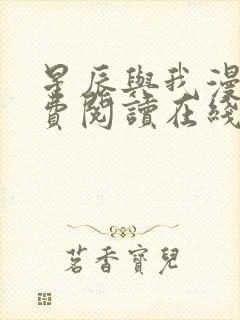 星辰與我漫
費閱讀在綫
茗香寶兒